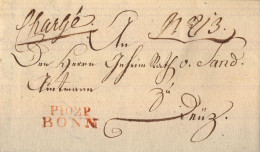 Chargé
N 213.
An
Den Herrn Geheim Rath v. Sand.
Amtmann
P.102.P.
BONN
zu
Deuz.